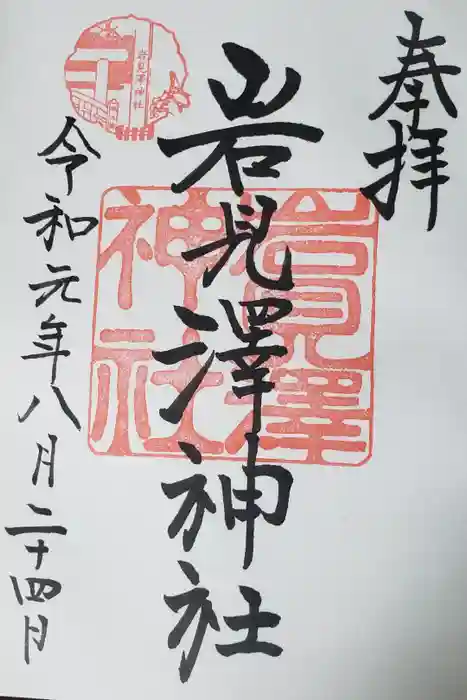 奉拝
岩見澤神社
岩見澤神社
岩見澤神社
令和元年八月二十四月